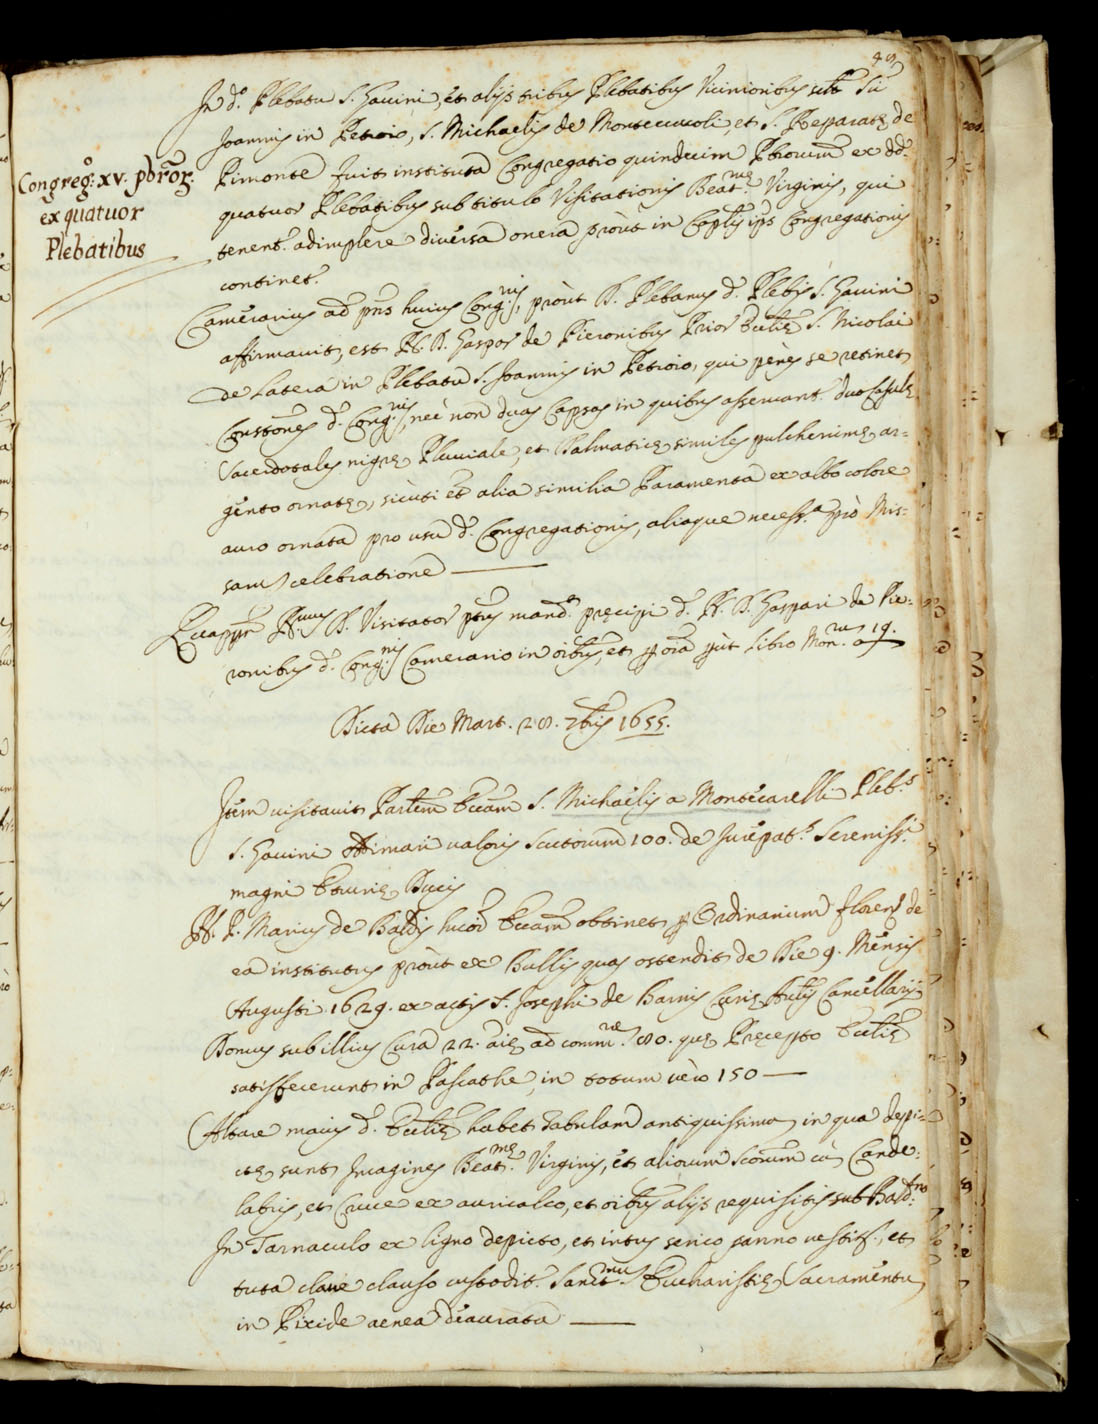 49
In d.º Plebatu S. Gavini, et alijs tribus Plebatibus Vicinioribus scilt. Sti
Joannis in Petroio, S. Michaelis de Montecuccoli, et S. Reparatę de
Congreg: xv. pbror.
ex quatuor
Plebatibus
Pimonte fuit instituta Congregatio quindecim Pbrorum ex dd.
quatuor Plebatibus sub titulo Visitationis Beat.mę Virginis, qui
tenent. adimplere diversa onera proùt in Caplis ips Congregationis
continet.
Camerarius ad pns huius Cong.nis, proùt D. Plebanus d. Plebis S. Gavini
affirmavit, est P. D. Gaspar de Pieronibus Prior Ecclię S. Nicolai
de Latera in Plebatu S. Joannis in Petroio, qui penès se retinet
Constones d. Cong.nis, nec non duas Capsas in quibus asservant. duo Casulę
Sacerdotales nigrę Pluviale, et Dalmaticę similes pulcherrimę ar=
gento ornatę, sicuti et alia similia Paramenta ex albo colore
auro ornata pro usu d. Congregationis, aliaque necess.a prò Mis=
sarum celebratione
Quappr R.mus D. Visitator ptus mand. pręcipi d. P. D. Gaspari de Pie=
ronibus d. Cong.nis Camerario in oibus, et p oia put Libro Mon.rum a 19.
Dicta Die Mart. 28. 7bris 1655.
Item visitavit Parlem Eccam S. Michaelis a Montecarelli Pleb.s
S. Gavini extimari valoris scutorum 100. de Jurepat.s Sereniss.i
magni Etrurię Ducis
P. P. Marius de Baldis huiõi Eccam obtinet p Ordinarium Floren. de
ea institutus proùt ex Bullis quas ostendit de Die 9. Mensis
Augusti 1629. ex actis S. Josephi de Barnis Curię Archlis Cancellarij
Domus sub illius Cura 22. aię ad comm.nę 80. quę Pręcepto Ecclię
satisfecerunt in Pascathe, in totum verò 150
Altare maius d. Ecclię habet tabulam antiquissimam in qua depi=
ctę sunt Imagines Beat.mę Virginis, et aliorum Scorum cũ Cande=
labris, et Cruce ex auricalco, et oibus alijs requisitis sub Bald.no
In Tarnaculo ex ligno depicto, et intus serico panno vestit., et
tuta clave clauso custodit. Sanct.mum Eucharistię Sacramentum
in Pixide aenea deaurata